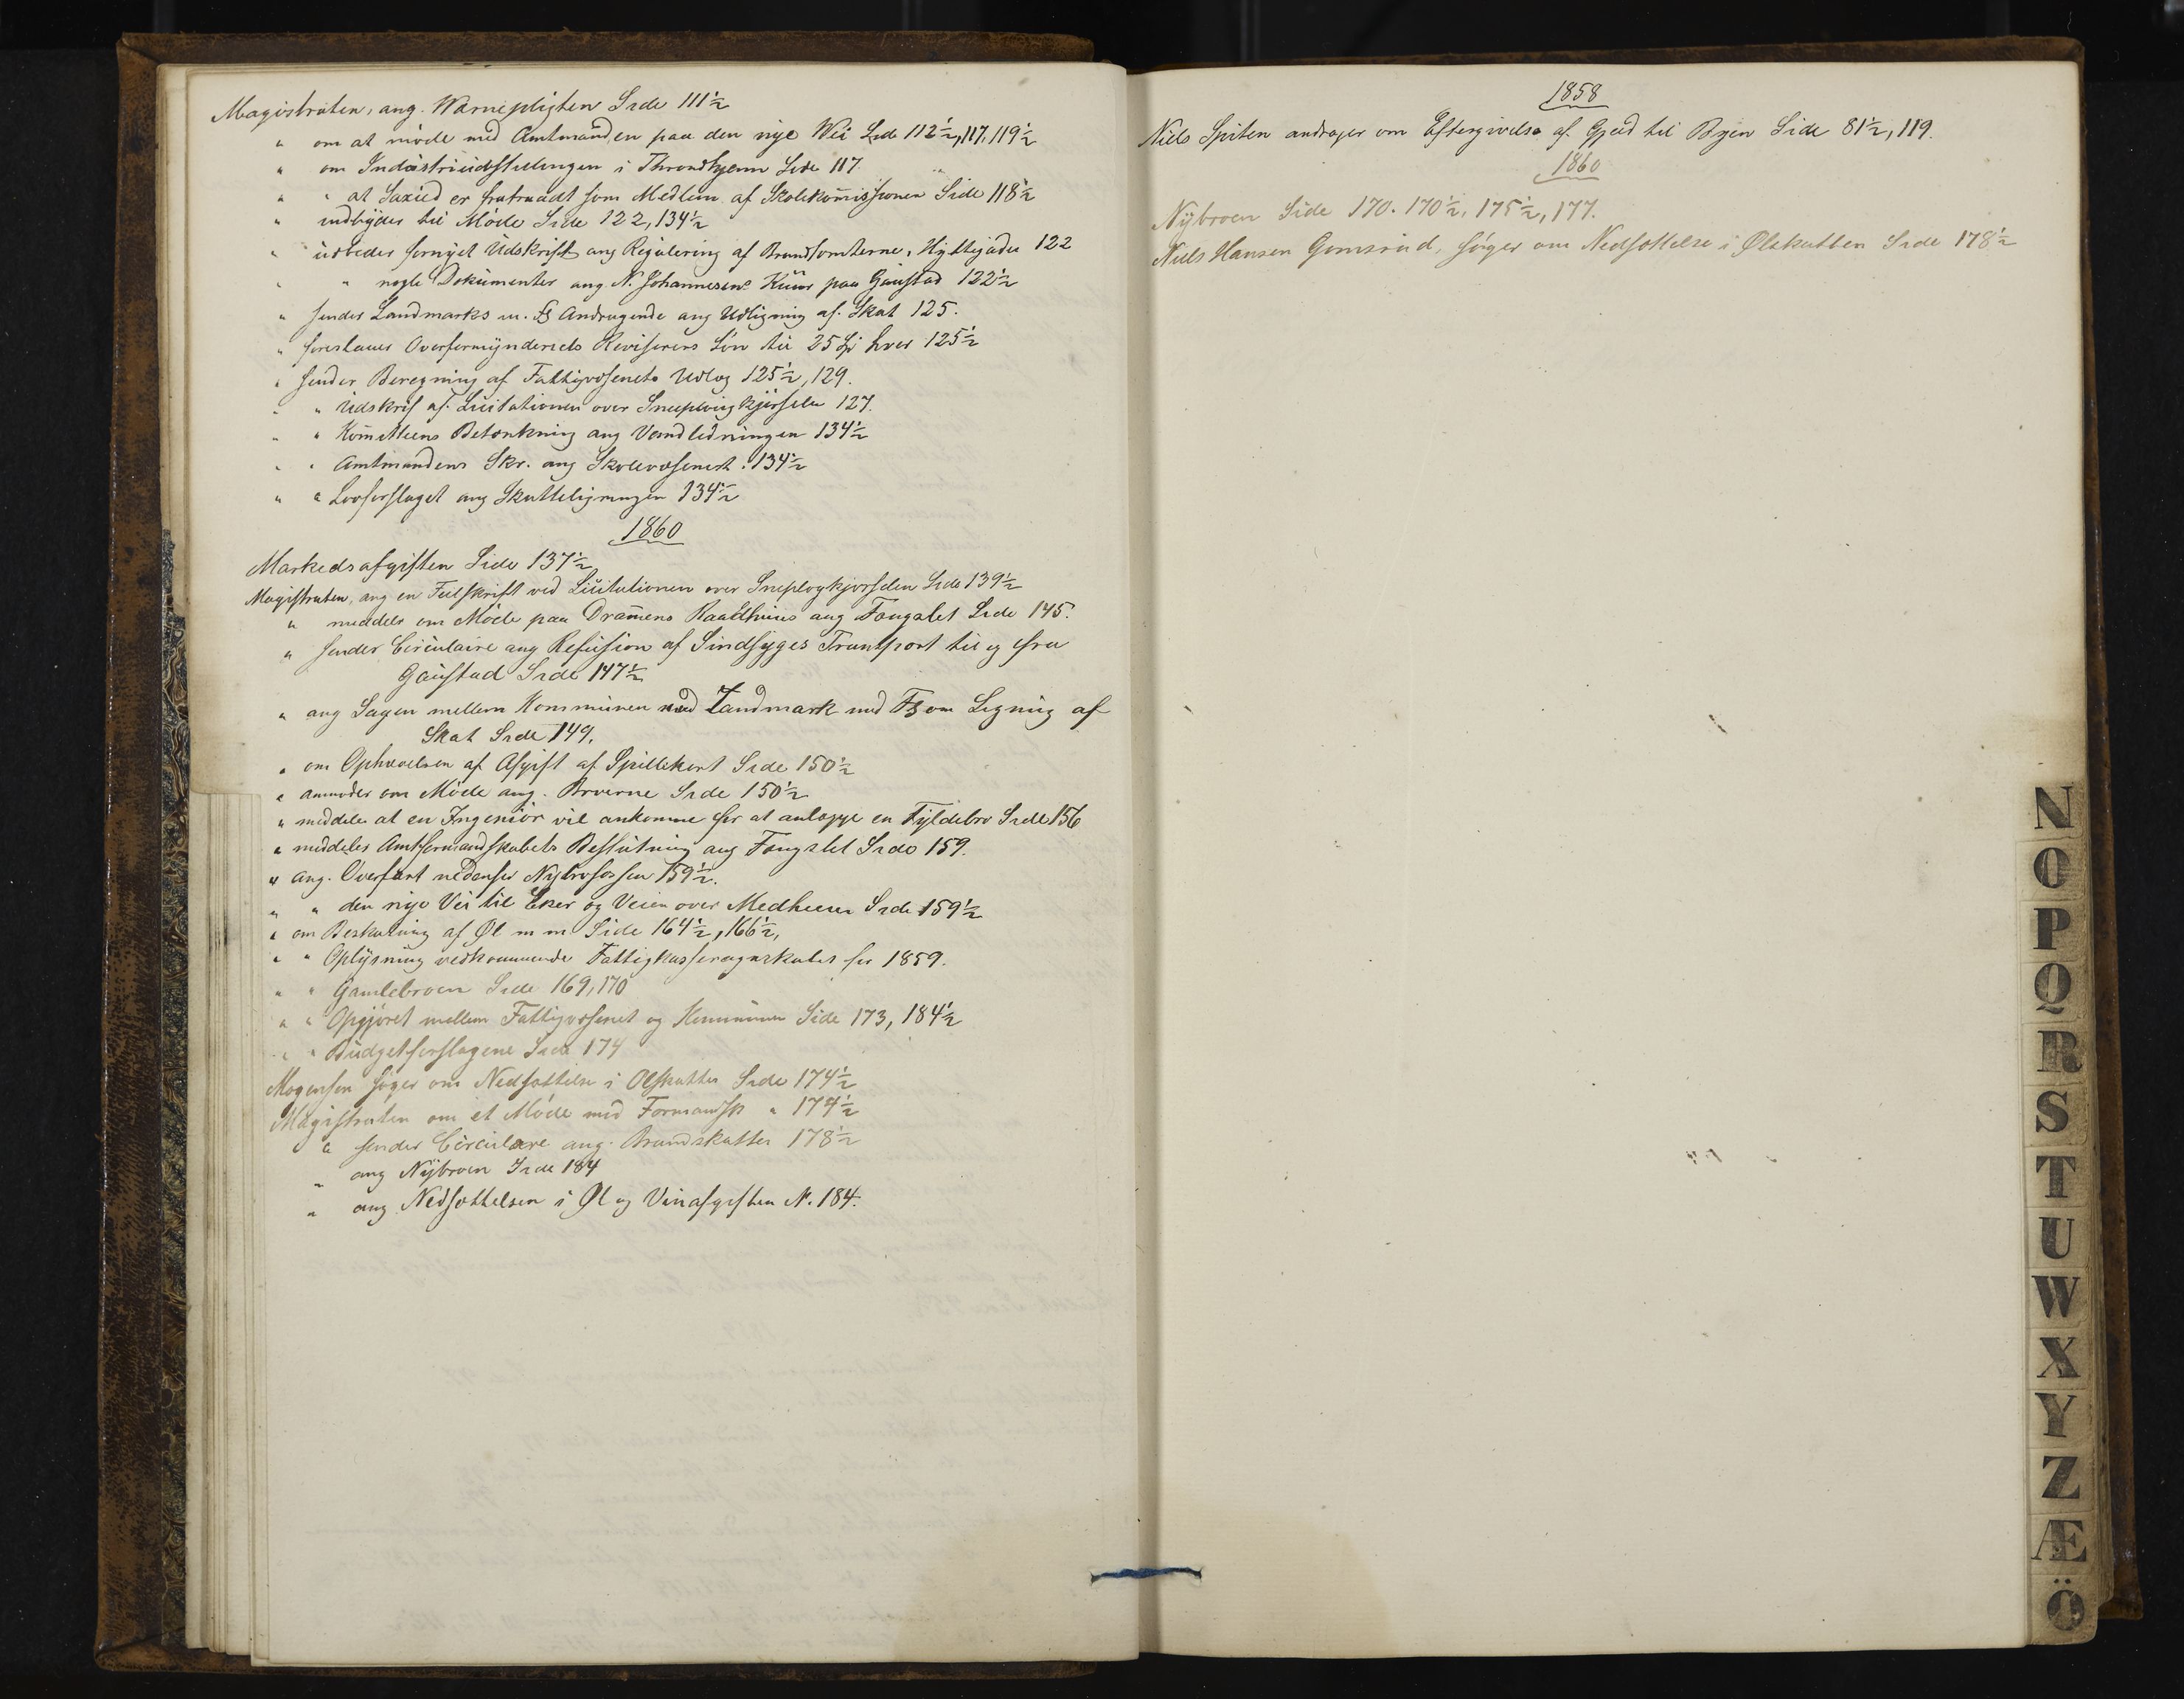 Magistraten, ang. Wærnepligten Side 111½
" om at møde med Amtmanden paa den nye Vei Sid 112½, 117, 119½
" om Industriudstillingen i Throndhjem Side 117
" " at Saxild er fratraadt som Medlem af Skolekommissionen Side 118½
" indbyder til Møde Side 122, 134½
" udbeder fornyet Udskrift ang Regulering af Brandtomterne, Hyttegaden 122
" " nogle Dokumenter ang N. Johannesens Kuur paa Gaustad 122½
" sender Landmarks m. fl Andragende ang Udligning af Skat 125.
" foreslaaes Overformynderiets Revisorers Løn til 25 Sp hver 125½
" sender Beregning af Fattigvæsenets Udlæg 125½, 129.
" " Udskrif af Licitationen over Sneeplougkjørselen 127.
" " Komitteens Betænkning ang Vandledningen 134½
" " Amtmandens Skr. ang Skolevæsenet. 134½
" " Lovforslaget ang Skatteligningen 134½
1860
Markedsafgiften Side 137½
Magistraten, ang en Feilskrift ved Licitationen over Sneplogkjørselen Side 139½
" meddels om Møde paa Drammens Raadhuus ang Fængslet Side 145.
" sender Circulaire ang Refusion af Sindsyges Transport til og fra
Gaustad Side 147½
" ang Sagen mellem Kommunen med Landmark med Fl om Ligning af
Skat Side 149.
" om Ophævelsen af Afgift af Spillekort Side 150½
" anmoder om Møde ang. Broerne Side 150½
" meddeles at en Ingeniør vil ankomme for at anlægge en Fyldebro Side 156
" meddeles Amtformandskabets Beslutning ang Fængslet Side 159.
" ang. Overfart nedenfor Nybrofossen 159½.
" " den nye Vei til Eker og Veien over Medheien Side 159½
" om Beskatning af Øl m m Side 164½, 166½,
" " Oplysning vedkommende Fattigkasseregnskabet for 1859.
" " Gamlebroen Side 169, 170
" " Opgjøret mellem Fattigvæsenet og Kommunen Side 173, 184½
" " Budgetforslagene Side 174
Mogensen søger om Nedsættelse i Ølskatten Side 174½
Magistraten om et Møde med Formandsk " 174½
" sender Circulære ang. Brandskatten 178½
" ang Nybroen Side 184
" ang Nedsættelsen i Øl og Vinafgiften N. 184.
1858
Niels Spiten andrager om Eftergivelse af Gjeld til Byen Side 81½, 119.
1860
Nybroen Side 170. 170½, 175½, 177.
Niels Hansen Gomsrud, søger om Nedsættelse i Ølskatten Side 178½
N
O
P
Q
R
S
T
U
W
X
Y
Z
Æ
Ö